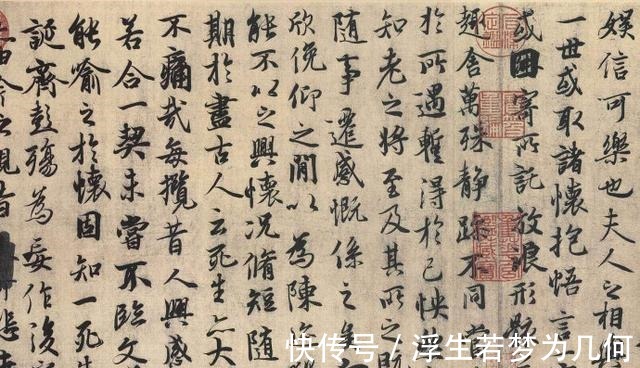 娛信可樂也夫人之相
一世或取諸懷抱悟言
或因寄所託放浪形骸
趣舍萬殊靜躁不同當
於所遇蹔得於己怏
知老之將至及其所之既
隨事遷感慨係之矣
欣俛仰之閒以為陳
能不以之興懷況脩短隨
期於盡古人云死生亦大
不痛哉每攬昔人興感
若合一契未嘗不臨文
能喻之於懷固知一死生
誕齊彭殤為妄作後
由今之視昔
快传号 / 浮生若梦为几何